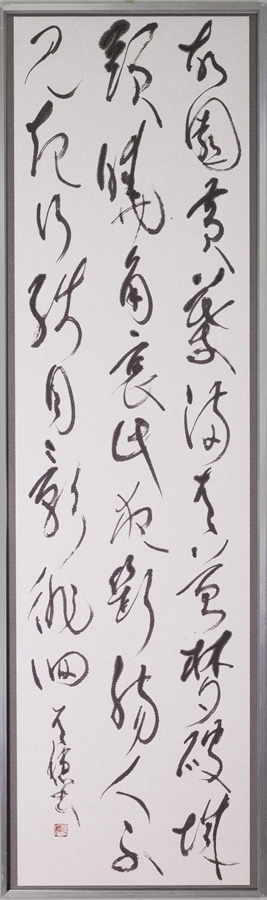 故園黃葉滿青苔夢破城
頭曉角哀此夜斷腸人不
見起行殘月影徘徊
書